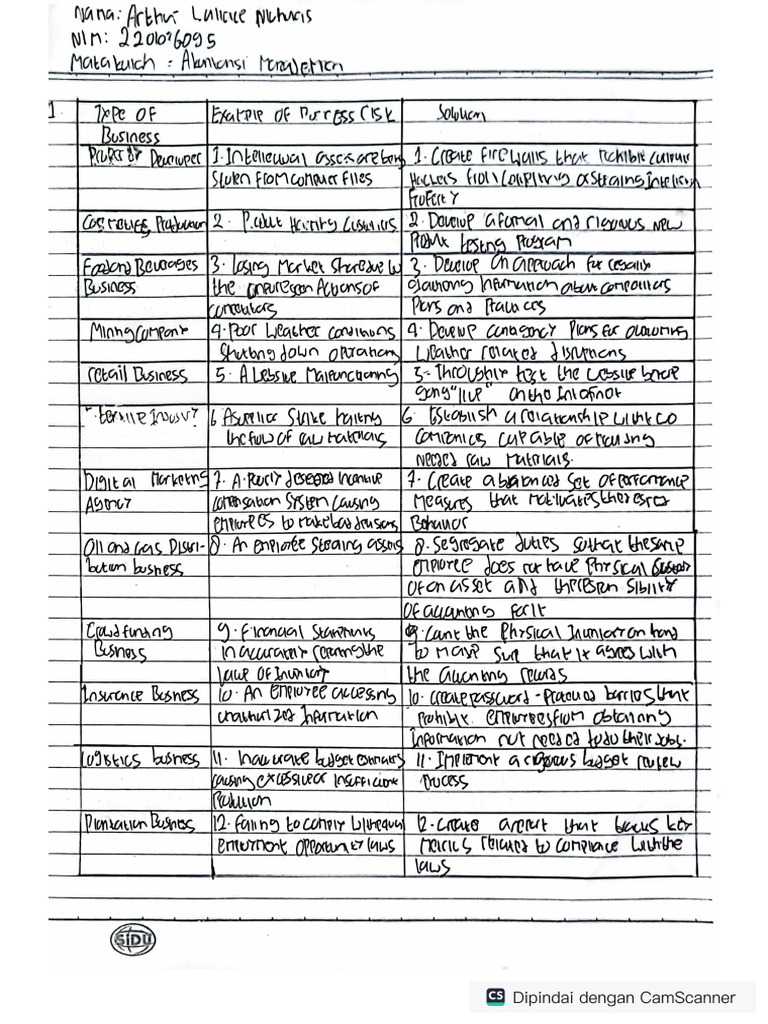 Nama: Arthur
NIM: 2201026095
Matakuliah : Akuntansi Manajemen
1. Type of Business Example of Process Risk Solution
Property Developer 1. Intellectual assets are being stolen from computer files 1. Create firewalls that prohibit computer hackers from corrupting or stealing intellectual property
Cosmetics Production 2. Product Harming Customers 2. Develop a formal and rigorous new product testing program
Food and Beverages Business 3. Losing Market share due to the unforeseen Actions of competitors 3. Develop an approach for legally gathering information about competitors Plans and Practices
Mining Company 4. Poor Weather conditions shutting down operations 4. Develop contingency Plans for overcoming weather related disruptions
retail Business 5. A website Malfunctioning 5. Throughly test the website before going "live" on the internet
Textile Industry 6. A supplier strike halting the flow of raw materials 6. Establish a relationship with companies capable of needed raw materials.
Digital Marketing Agency 7. A Poorly designed incentive compensation system causing employees to make bad decisions 7. Create a balanced set of performance measures that motivates the desired Behavior
Oil and Gas Distribution business 8. An employee stealing assets 8. Segregate duties so that the same employee does not have physical custody of an asset and the responsibility of accounting for it
Crowdfunding Business 9. Financial statements inaccurately reporting the value of inventory 9. Count the Physical Inventory on hand to make sure that it agrees with the accounting records
Insurance Business 10. An employee accessing unauthorized information 10. Create password-protected barriers that prohibit employees from obtaining information not needed to do their jobs.
Logistics business 11. Inaccurate budget estimates causing excessive or insufficient Production 11. Implement a rigorous budget review Process
Plantation Business 12. Failing to comply with equal employment opportunity laws 12. Create a report that tracks key metrics related to compliance with the laws
SIDU
CS Dipindai dengan CamScanner